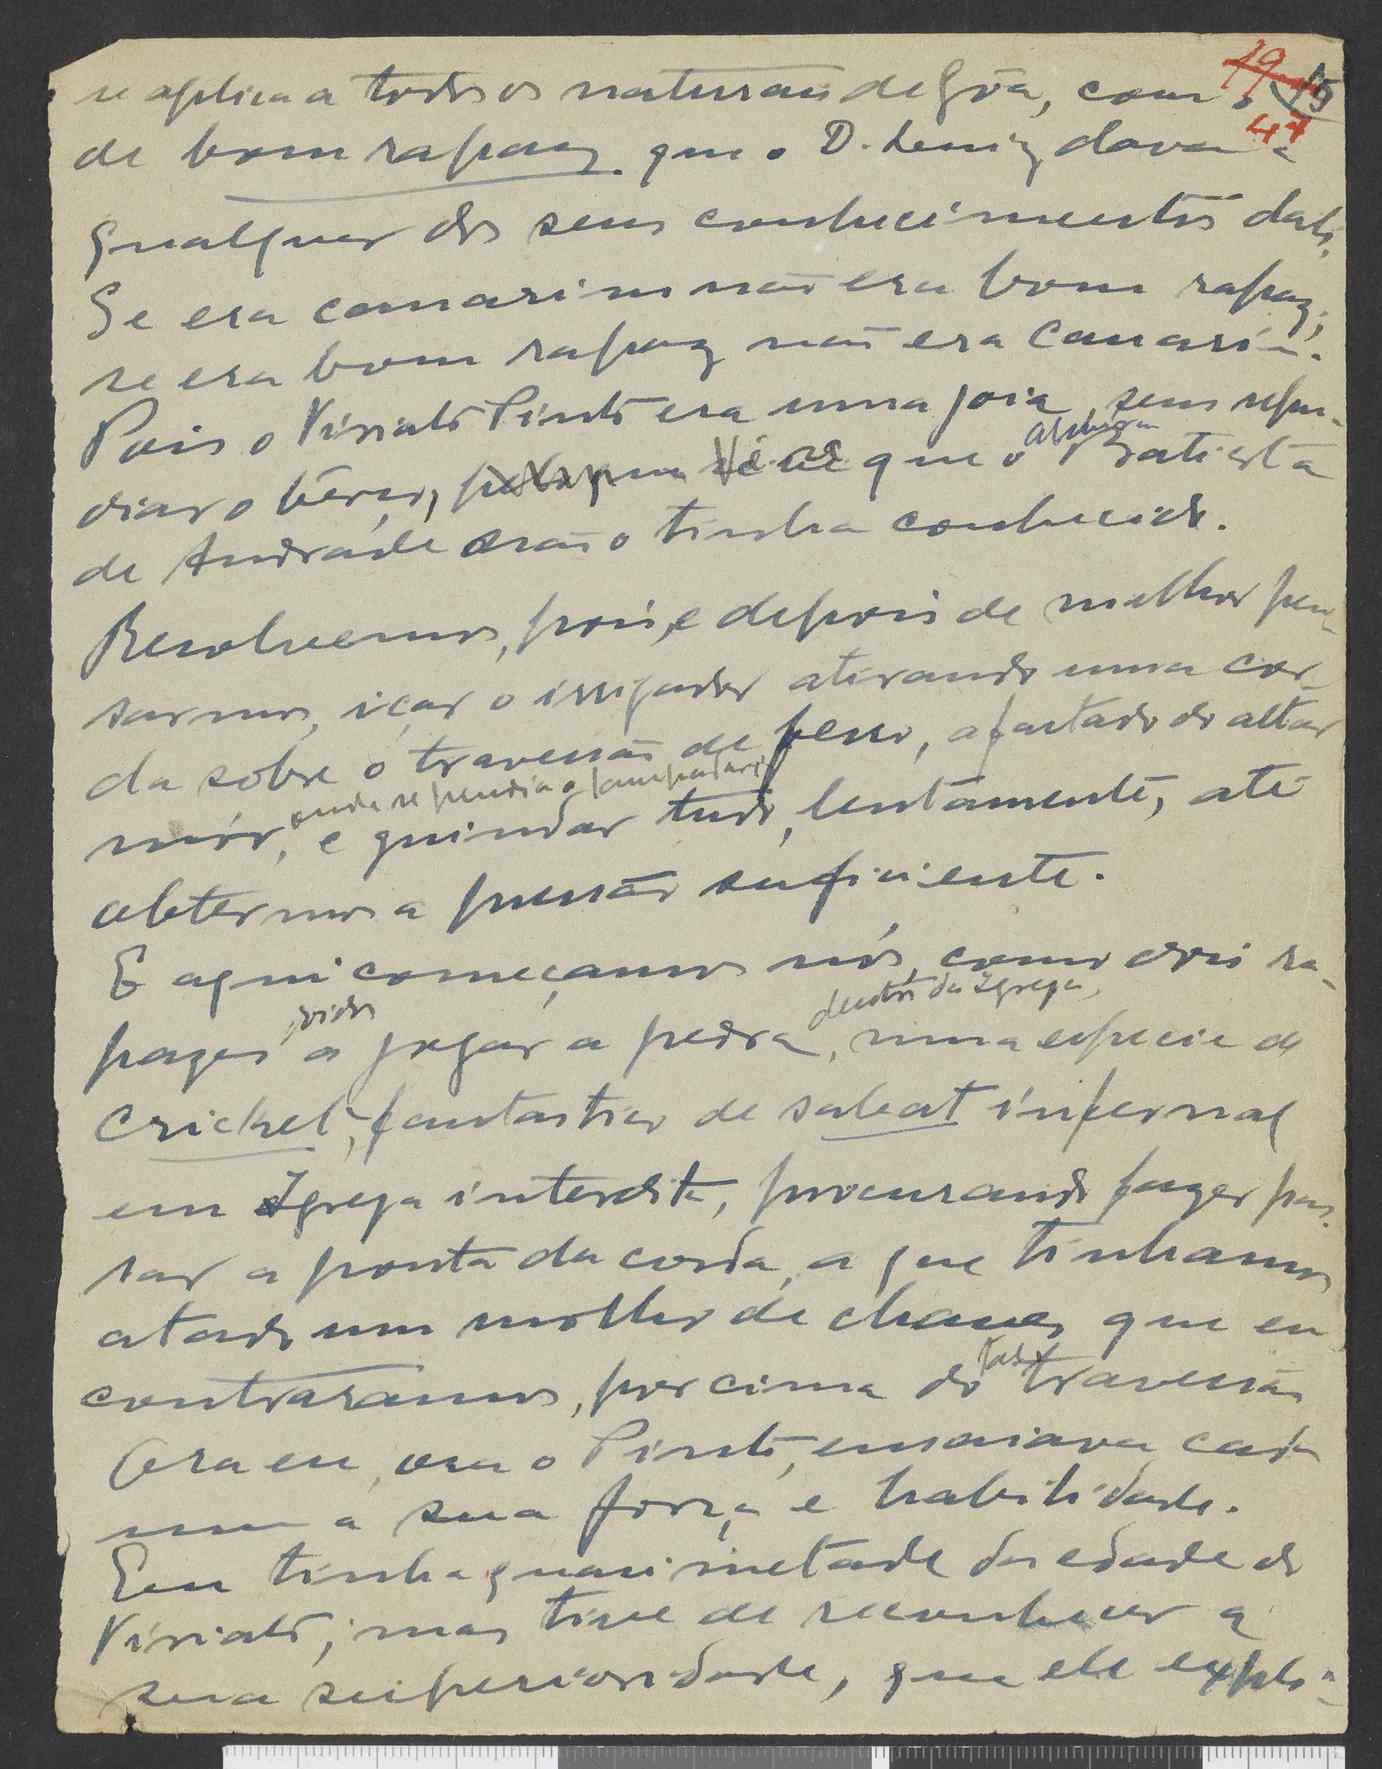 19 15
47
se aplica a todos os naturaes de Gôa, com o
de bom rapaz que o D. Luiz dava a
qualquer dos seus conhecimentos dali.
Se era canarim não era bom rapaz;
se era bom rapaz não era canarim.
Pois o Viriato Pinto era uma joia, sem repu-
diar o berço, que o Batista
de Andrade não o tinha conhecido.
Resolvemos, pois, e depois de melhor pen-
sarmos, içar o irrigador atirando uma cor-
da sobre o travessão de ferro, afastado do altar
onde se pendia o lampadario
mór, e guindar tudo, lentamente, até
obtermos a pressão suficiente.
E aqui começamos nós, como dois ra-
dentro da Igreja,
pazes a jogar a pedra, numa especie de
crichet, fantastico de sabat infernal
em Igreja interdita, procurando fazer pas-
sar a ponta da corda, a que tinhamos
atado um molho de chaves que en
contraramos, por cima do tal travessão
Ora eu, ora o Pinto, ensaiava cada
um a sua força e habilidade.
Eu tinha quasi metade da edade do
Viriato; mas tive de reconhecer a
sua superioridade, que ele explo-